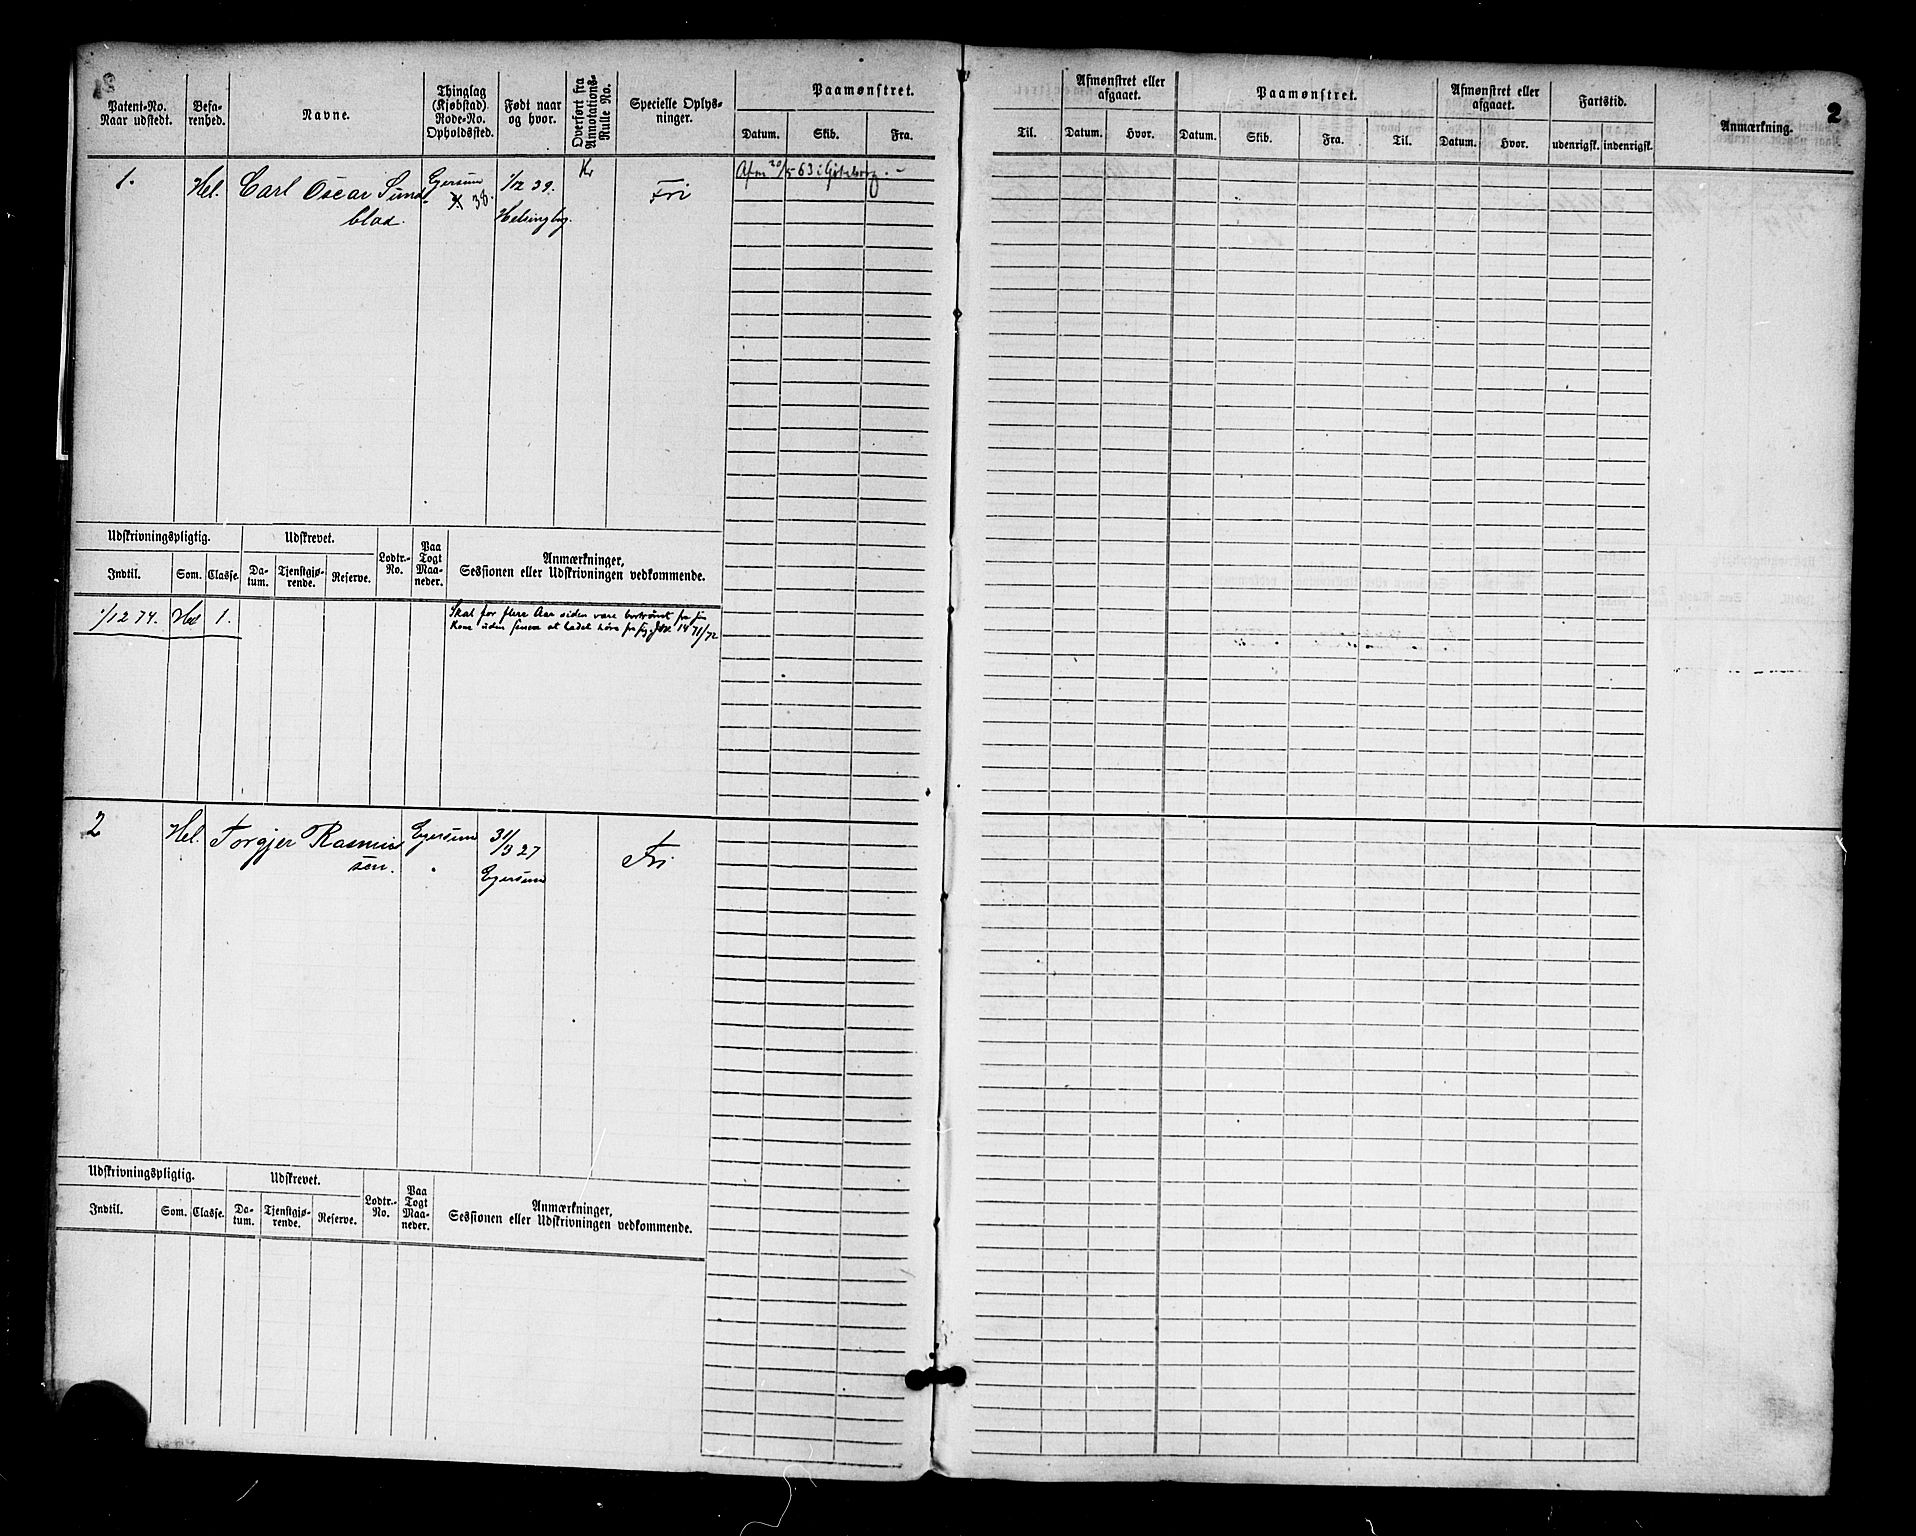 2
Patent-No. Naar udstedt.
Befarenhed.
Navne.
Thinglag (Kjøbstad) Rode-No. Opholdssted.
Født naar og hvor.
Overført fra Annotations-Rulle No.
Specielle Oplysninger.
Paamønstret.
Datum. Skib. Fra.
Til.
Afmønstret eller afgaaet.
Datum. Hvor.
Paamønstret.
Datum. Skib. Fra. Til.
Afmønstret eller afgaaet.
Datum. Hvor.
Fartstid.
udenrigsk. indenrigsk.
Anmærkning.
1. Hel. Carl Oscar Sund- Egersund 1/12 39. Kr Fri Afm 20/5 63 i Gøteborg.
blad. 38. Helsingbg.
Udskrivningspligtig. Udskrevet. Lodtr.-No. Paa Togt Maaneder. Anmærkninger,
Sessionen eller Udskrivningen vedkommende.
Indtil. Som. Classe. Datum. Tjenstgjørende. Reserve.
1/12 74. Hel 1. Skal for flere Aar siden være bortrømt fra sin
Kone uden senere at ladet høre fra sig 71/72
2 Hel. Torgjer Rasmus- Egersund 31/ 27 Fri
sen. Egersund
Udskrivningspligtig. Udskrevet. Lodtr.-No. Paa Togt Maaneder. Anmærkninger,
Sessionen eller Udskrivningen vedkommende.
Indtil. Som. Classe. Datum. Tjenstgjørende. Reserve.